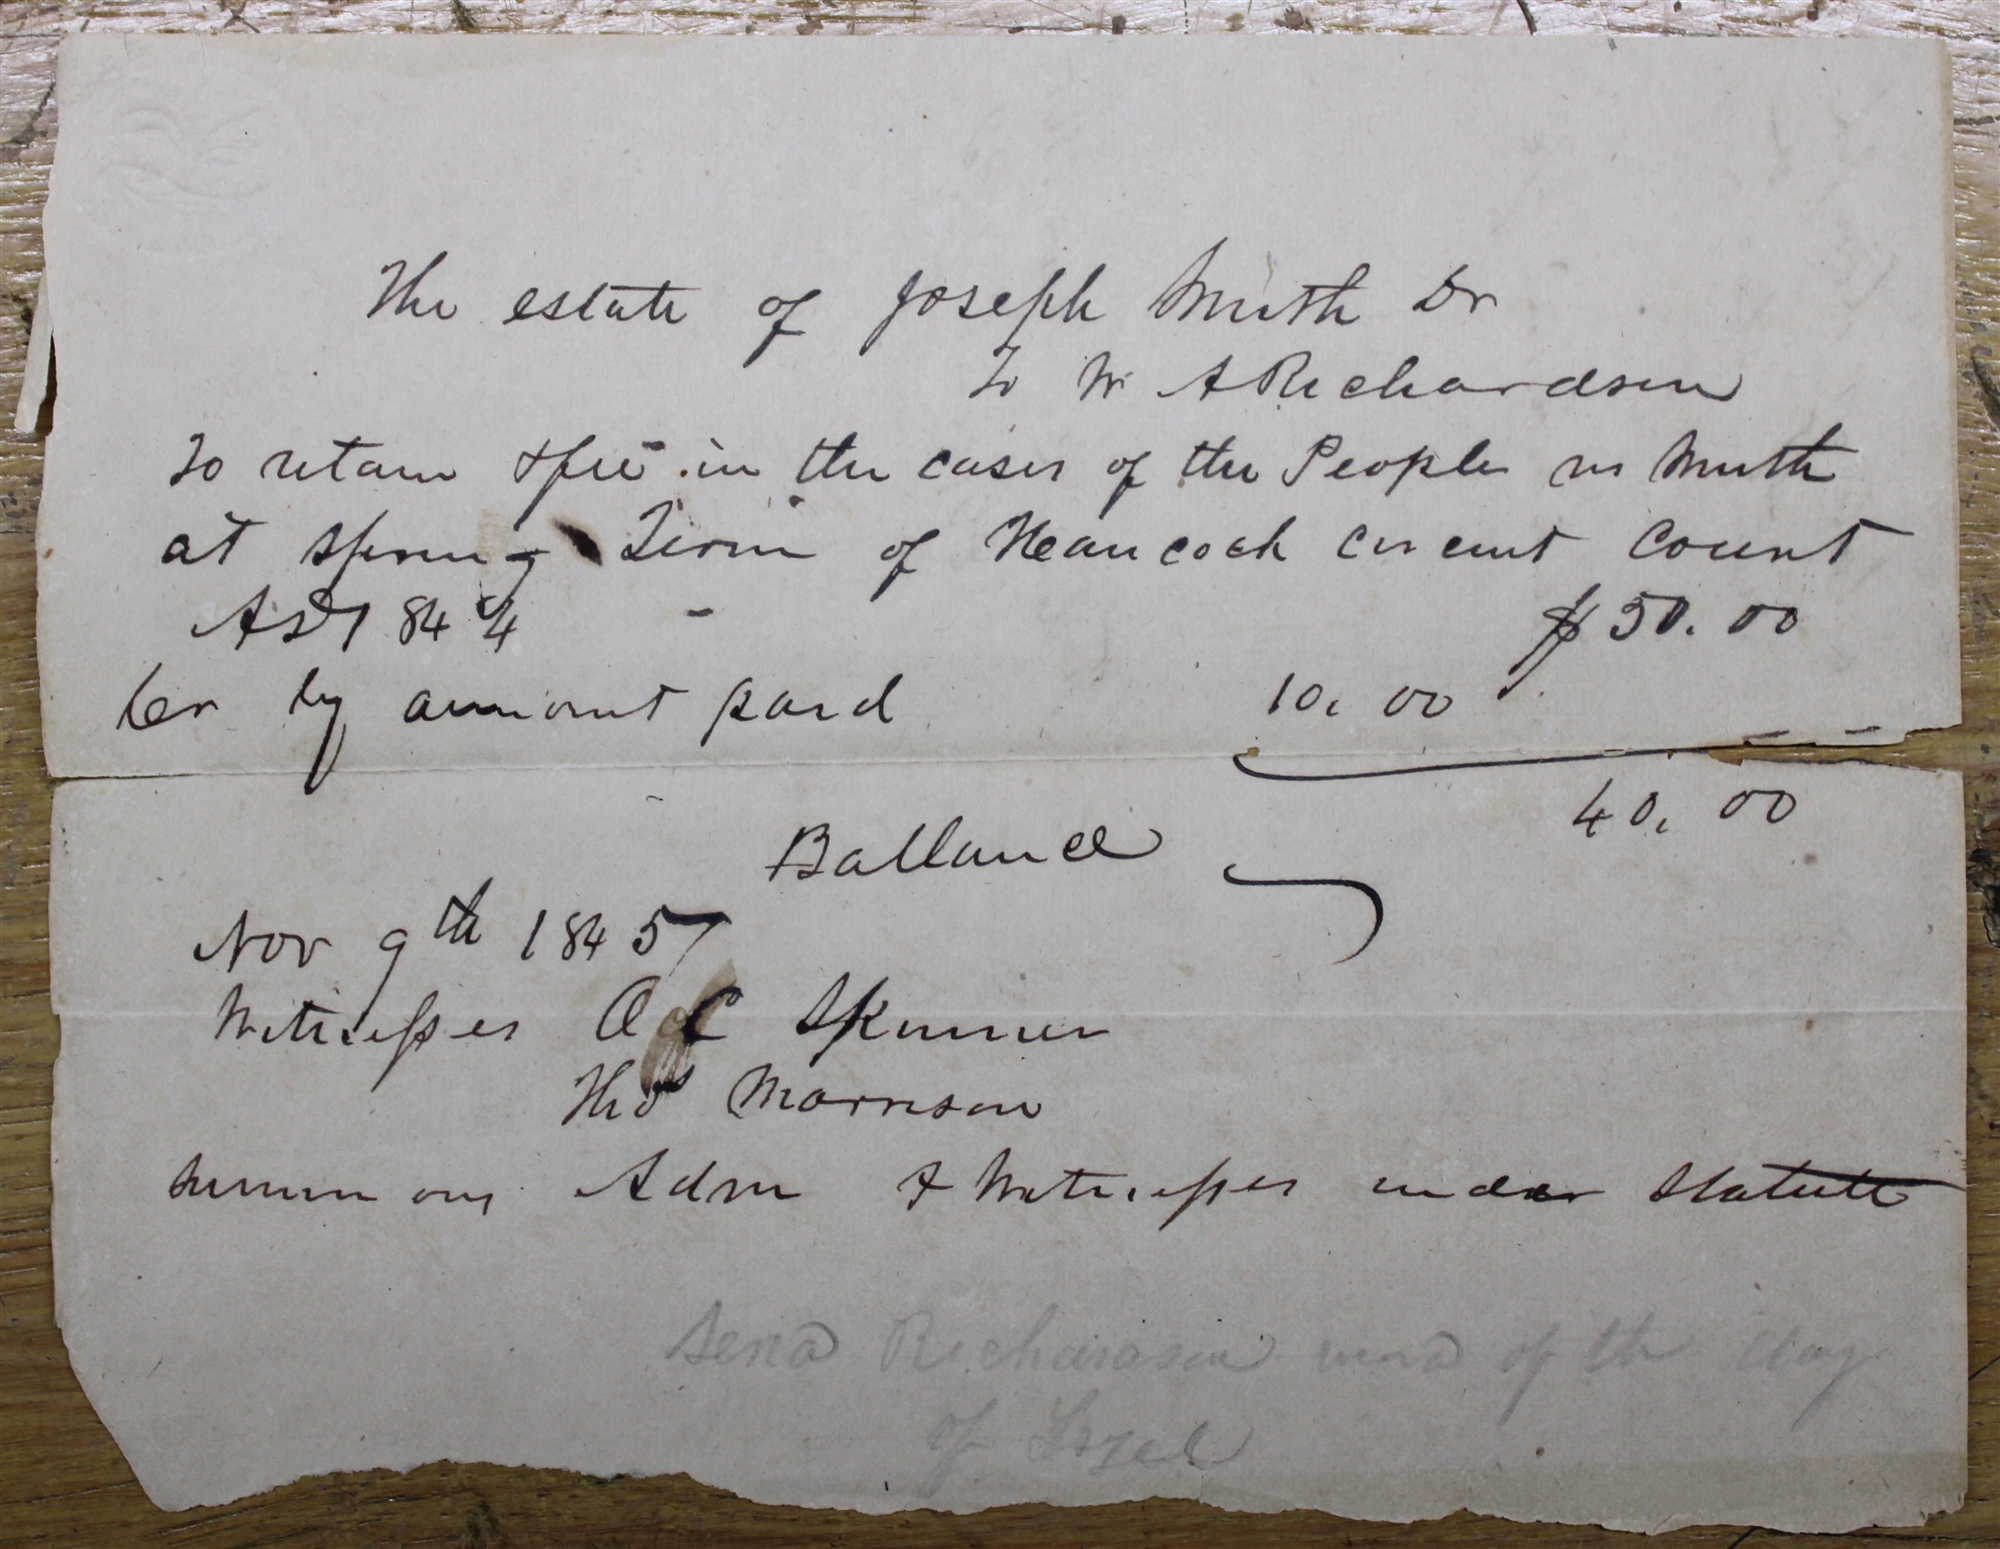 The estate of Joseph Smith Dr
To W A Richardson
To retain & fee in the cases of the People vs Smith
at Spring Term of Heancock circuit Court
AD 1844 $50.00
Cr by ammount paid 10.00
40.00
Ballance
Nov 9th 1845
Witnesses O C Skinner
Thos Morrison
Summons Adm & Witnesses under Statute
Send Richardson word of the day
of